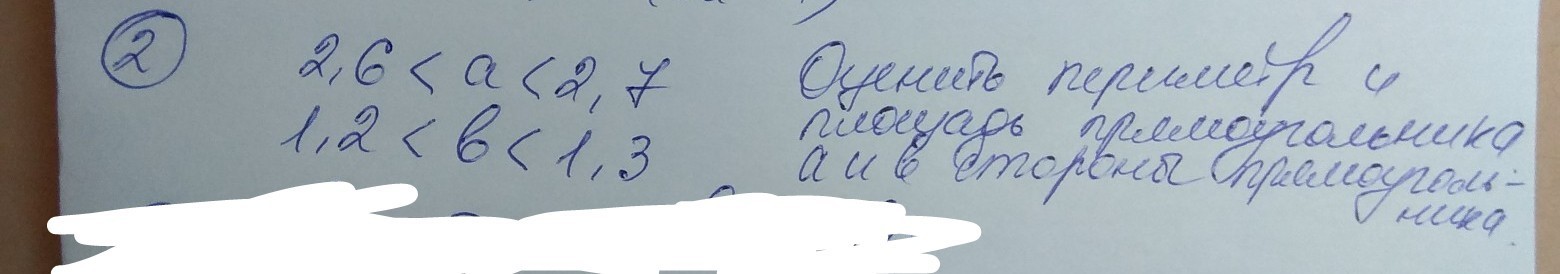 2
2,6 < a < 2,7 Оценить периметр и
1,2 < b < 1,3 площадь прямоугольника
a и b стороны прямоуголь-
ника.